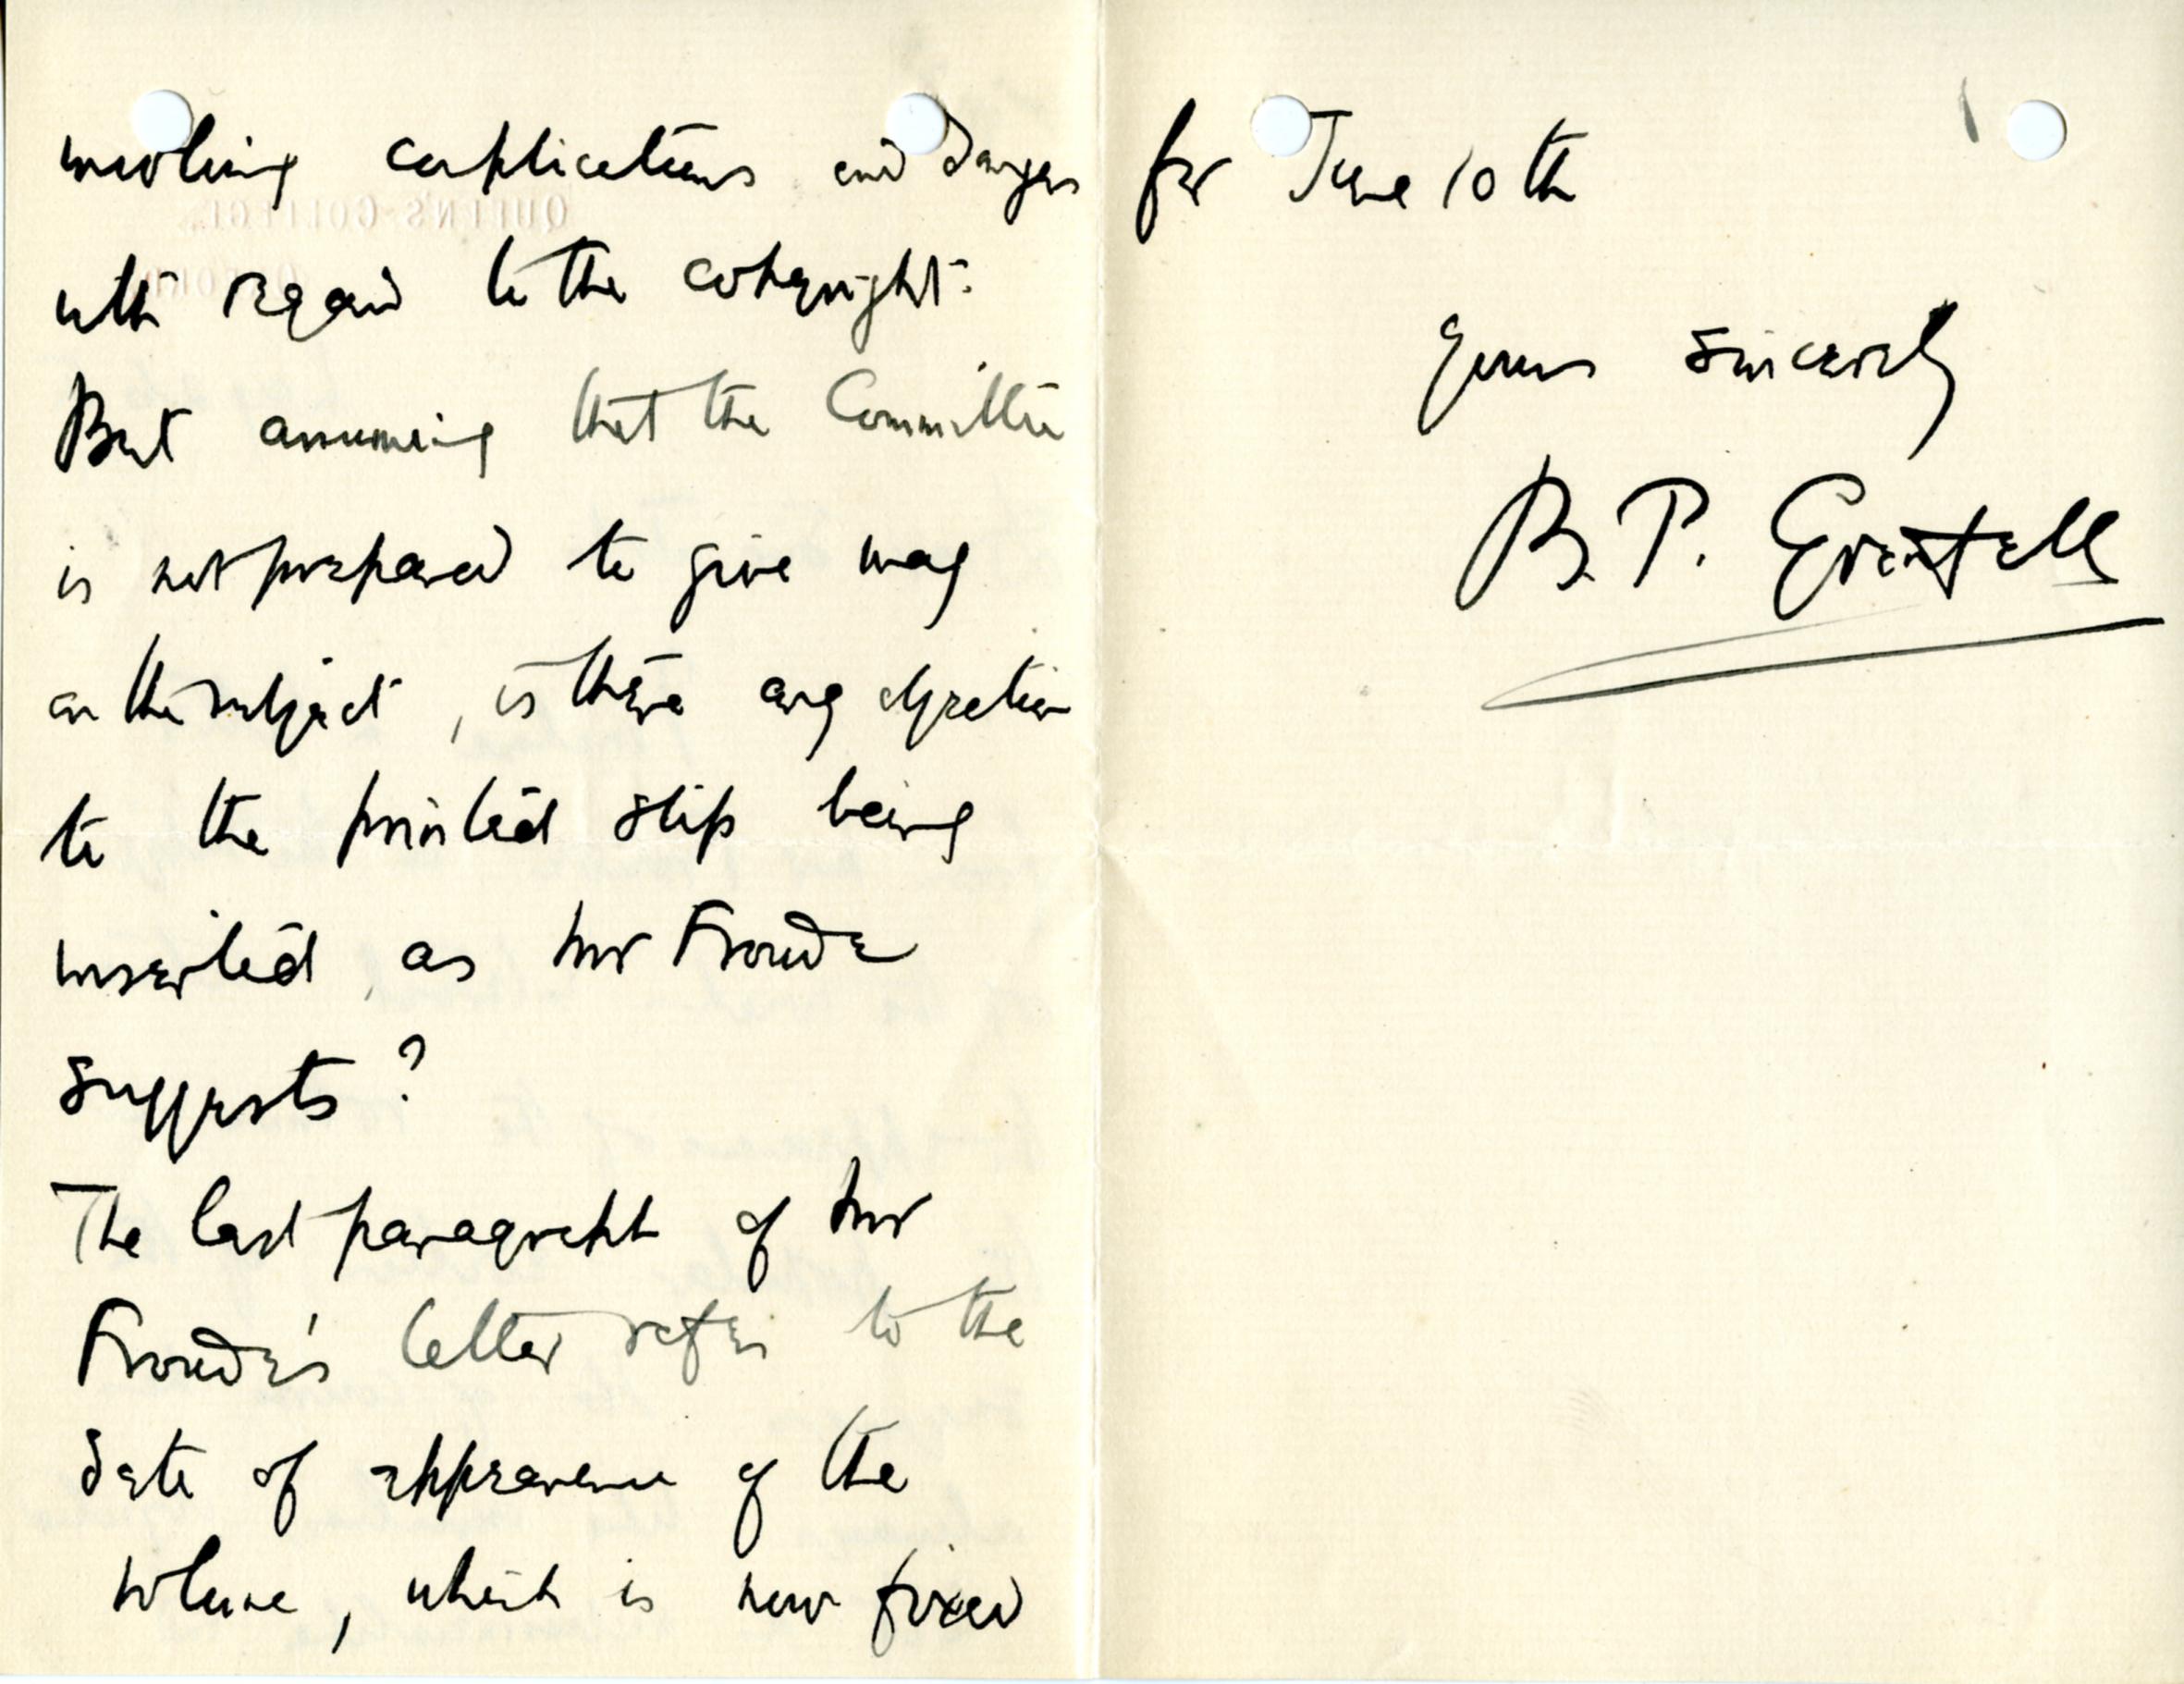 involving complications and dangers
with regard to the copyright.
But assuming that the Committee
is not prepared to give way
on the subject, is there any objection
to the printed slip being
inserted as Mr Frowde
suggests?
The last paragraph of Mr
Frowde's letter refers to the
date of appearance of the
volume, which is now fixed
for June 10th
Yours sincerely
B. P. Grenfell
QUEEN'S COLLEGE,
OXFORD.